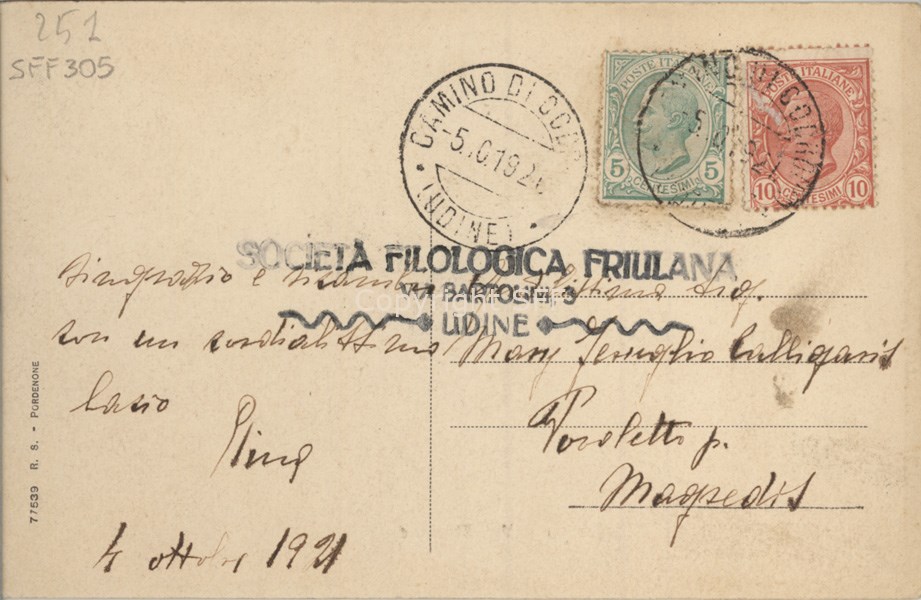 251
SFF305
CAMINO DI CODR
5.10.192
(UDINE)
POSTE ITALIANE
5 CENTESIMI 5
POSTE ITALIANE
10 CENTESIMI 10
SOCIETÀ FILOLOGICA FRIULANA
VIA BARTOLINI 3
UDINE
Copyright SFF
ringrazio e
con un cordialissimo
bacio
Pina
4 ottobre 1921
Sig.
Mary Calligaris
Povoletto p.
Magredis
77539 R. S. - PORDENONE